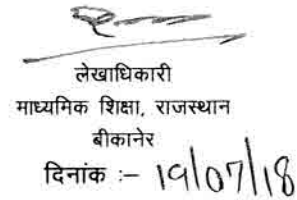 लेखाधिकारी
माध्यमिक शिक्षा, राजस्थान
बीकानेर
दिनांक :– 19/07/18